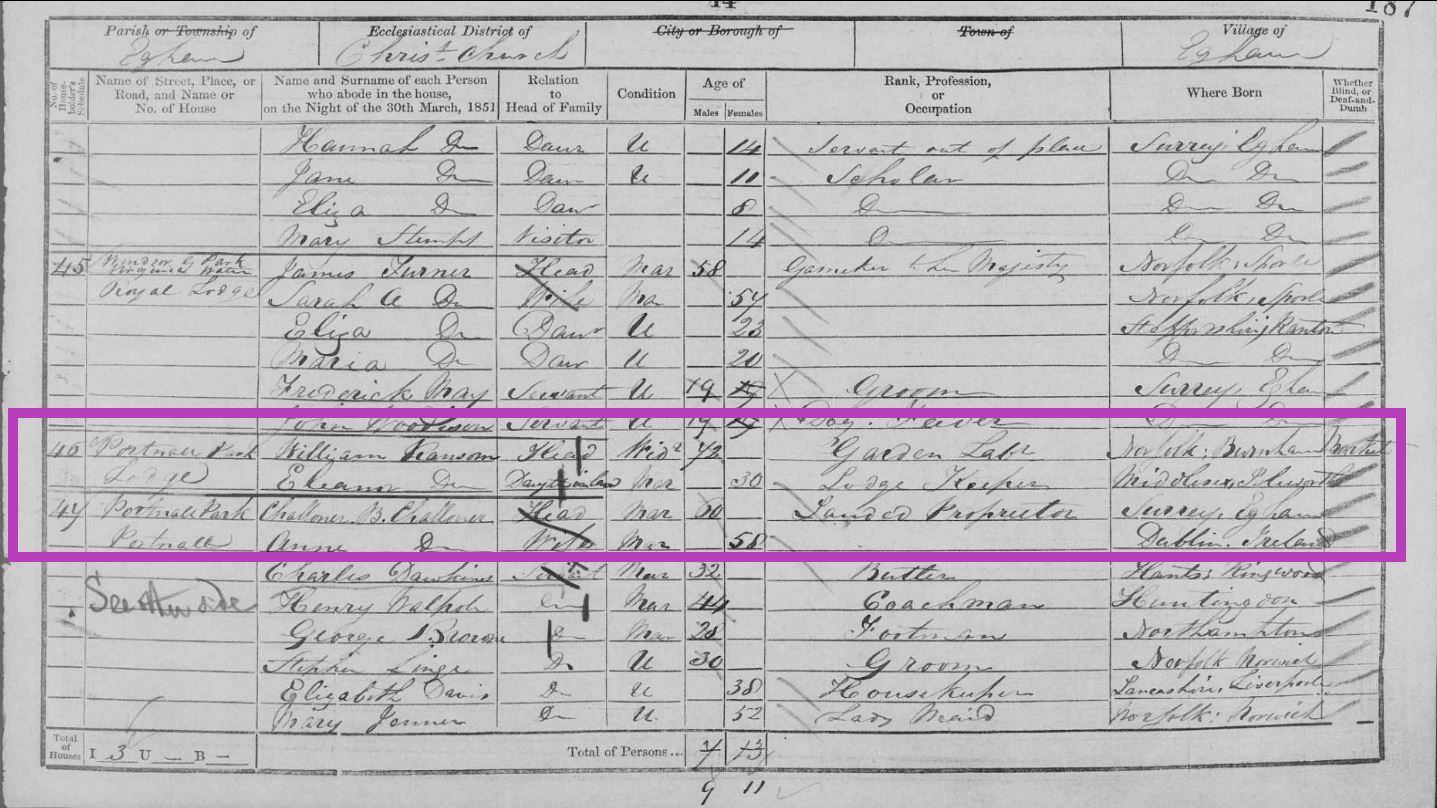 14
187
Parish or Township of Ecclesiastical District of City or Borough of Town of Village of
Egham Christchurch Egham
No. of House-holder's Schedule Name of Street, Place, or Road, and Name or No. of House Name and Surname of each Person who abode in the house, on the Night of the 30th March, 1851 Relation to Head of Family Condition Age of Males Females Rank, Profession, or Occupation Where Born Whether Blind, or Deaf-and-Dumb
Hannah Do Daur U 14 Servant out of place Surrey, Egham
Jane Do Daur U 11 Scholar Do Do
Eliza Do Daur 8 Do Do Do
Mary Visitor 14 Do Do Do
45 Windsor Gt Park Virginia Water James Turner Head Mar 58 Majesty Norfolk,
Royal Lodge Sarah A Do Wife Mar 54 Norfolk,
Eliza Do Daur U 23 Staffordshire, Ranton
Maria Do Daur U 20 Do Do
Frederick May Servant U 19 19 Groom Surrey, Egham
John Servant U 19 19 Dog Feeder Do Do
46 Portnall Park William Ransom Head Widr 72 Garden Labr Norfolk; Burnham
Lodge Eleanor Do Mar 30 Lodge Keeper Middlesex,
47 Portnall Park Challoner B. Challoner Head Mar 60 Landed Proprietor Surrey, Egham
Portnall Anne Do Wife Mar 58 Dublin. Ireland
Charles Dawkins Servant Mar 32 Butler Hants; Ringwood
See other side Henry Walpole Do Mar 44 Coachman Huntingdon
George Do Mar 28 Footman Northampton
Stephen Linge Do U 30 Groom Norfolk Norwich
Elizabeth Davis Do U 38 Housekeeper Lancashire, Liverpool
Mary Jenner Do U 52 Lady Maid Norfolk; Norwich
Total of Houses I 3 U — B — Total of Persons... 7 13
9 11